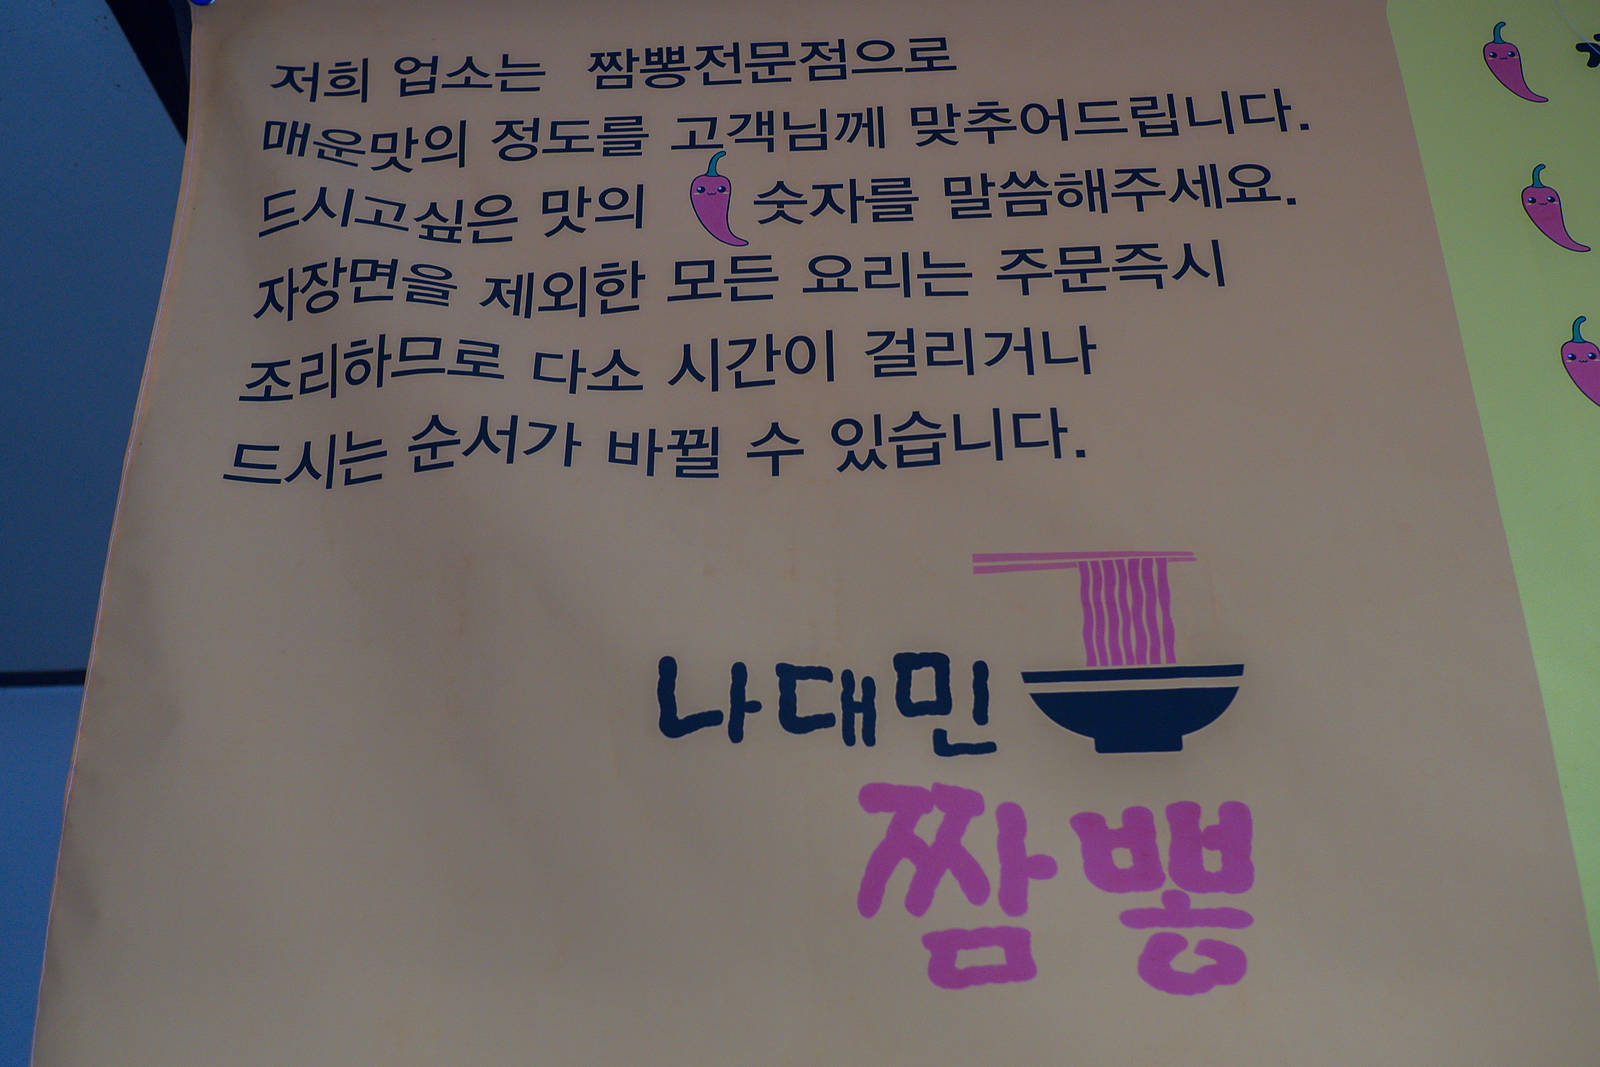 저희 업소는 짬뽕전문점으로
매운맛의 정도를 고객님께 맞추어드립니다.
드시고싶은 맛의 숫자를 말씀해주세요.
자장면을 제외한 모든 요리는 주문즉시
조리하므로 다소 시간이 걸리거나
드시는 순서가 바뀔 수 있습니다.
나대민
짬뽕